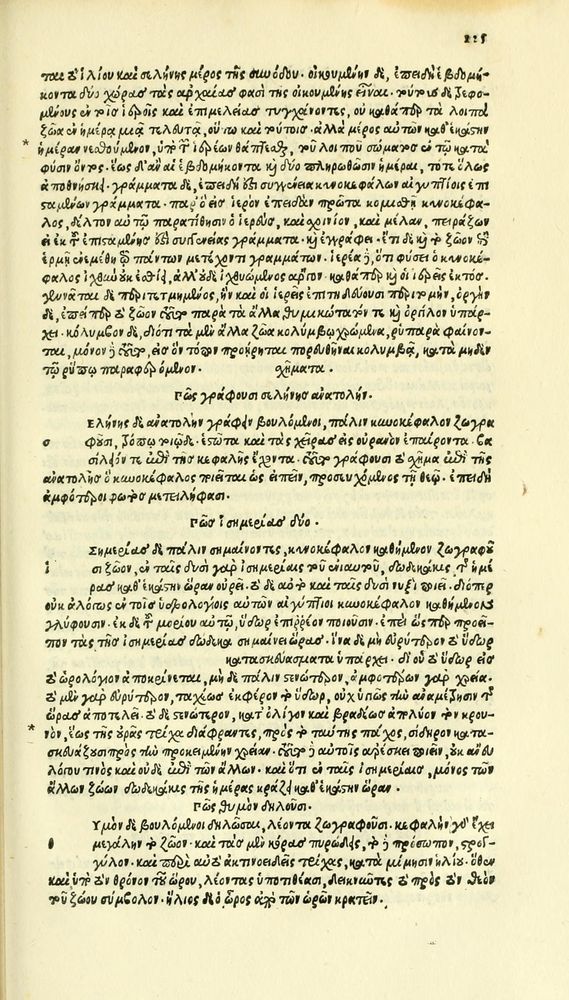 225
ται δ' ἡλίου καὶ σελήνης μέρος τῆς συνόδου. οἰκουμένην δὲ, ἐπειδὴ ἑβδομή-
κοντα δύο χώρας τὰς ἀρχαίας φασὶ τῆς οἰκουμένης εἶναι. τούτους δὲ τρεφο-
μένους ἐν τοῖς ἱεροῖς καὶ ἐπιμελείας τυγχάνοντες, οὐ καθάπερ τὰ λοιπὰ
ζῶα ἐν ἡμέρα μιᾶ τελευτᾶ, οὕτω καὶ τούτους. ἀλλὰ μέρος αὐτῶν καθ' ἑκάστην
* ἡμέραν νεκρούμενον, ὑπὸ τῶν ἱερέων θάπτεσθαι, τοῦ λοιποῦ σώματος ἐν τῷ κατὰ
φύσιν ὄντος. ἕως δ' ἂν αἱ ἑβδομήκοντα καὶ δύο πληρωθῶσιν ἡμέραι, τότε ὅλως
ἀποθνήσκει. γράμματα δὲ, ἐπειδὴ ἔστι συγγένεια κυνοκεφάλων αἰγυπτίοις ἐπι
σταμένων γράμματα. παρ' ὃ εἰς ἱερὸν ἐπειδὰν πρῶτα κομισθῇ κυνοκέφα-
λος, δέλτον αὐτῷ παρατίθησιν ὁ ἱερεὺς, καὶ σχοινίον, καὶ μέλαν, πειράζων
εἰ ἐκ τῆς ἐπισταμένης ἐστὶ συγγενείας γράμματα. καὶ εἰ γράφει. ἔτι δὲ καὶ τὸ ζῶον τῷ
ἑρμῇ ἐνεμήθη τῷ πάντων μετέχοντι γραμμάτων. ἱερέα δὲ, ὅτι φύσει ὁ κυνοκέ-
φαλος ἰχθὺν οὐκ ἐσθίει, ἀλλ' οὐδὲ ἰχθυωμένον ἄρτον. καθάπερ καὶ οἱ ἱερεῖς ἐκτός.
γεννᾶται δὲ περιτετμημένος, ἣν καὶ οἱ ἱερεῖς ἐπιτηδεύουσι περιτομὴν, ὀργὴν
δὲ, ἐπείπερ τὸ ζῶον τοῦτο παρὰ τὰ ἄλλα θυμικώτατόν τε καὶ ὀργίλον ὑπάρ-
χει. κόλυμβον δὲ, διότι τὰ μὲν ἄλλα ζῶα κολυμβῶν χρώμενα, ῥυπαρὰ φαίνον-
ται, μόνον δὲ τοῦτο, εἰς ὃν τόπον προῄρηται πορευθῆναι κολυμβᾷ, κατὰ μηδὲν
τῷ ῥύπῳ παραφερόμενον. σχήματα.
Πῶς γράφουσι σελήνης ἀνατολήν.
Ελήνης δὲ ἀνατολὴν γράφειν βουλόμενοι, πάλιν κυνοκέφαλον ζωγρα
σ φοῦσι, τρόπῳ τοιῷδε. ἑστῶτα καὶ τὰς χεῖρας εἰς οὐρανὸν ἐπαίροντα. βα
σίλειόν τε ἐπὶ τῆς κεφαλῆς ἔχοντα. τοῦτο γράφουσι τὸ σχῆμα ἐπὶ τῆς
ἀνατολῆς ὃ κυνοκέφαλος ποιεῖται ὡς εἰπεῖν, προσευχόμενος τῇ θεῷ. ἐπειδὴ
ἀμφότεροι φωτὸς μετειλήφασι.
Πῶς ἰσημερίας δύο.
Σημερίας δὲ πάλιν σημαίνοντες, κυνοκέφαλον καθήμενον ζωγραφοῦ
ι σι ζῶον, ἐν ταῖς δυσὶ γὰρ ἰσημερίαις τοῦ ἐνιαυτοῦ, δωδεκάκις τῆς ἡμέ
ρας καθ' ἑκάστην ὥραν οὐρεῖ. τὸ δὲ αὐτὸ καὶ ταῖς δυσὶ νυξὶ ποιεῖ. διόπερ
οὐκ ἀλόγως ἐν τοῖς ὑδρολογίοις αὐτῶν αἰγύπτιοι κυνοκέφαλον καθήμενον
γλύφουσιν. ἐκ δὲ τοῦ μορίου αὐτοῦ, ὕδωρ ἐπιρρέον ποιοῦσιν. ἐπεὶ ὥσπερ προεῖ-
πον τὰς τῆς ἰσημερίας δώδεκα σημαίνει ὥρας. ἵνα δὲ μὴ εὐρύτερον τὸ ὕδωρ
κατασκευάσματα ὑπάρχει. δι' οὗ τὸ ὕδωρ εἰς
τὸ ὡρολόγιον ἀποκρίνεται, μὴ δὲ πάλιν στενώτερον, ἀμφοτέρων γὰρ χρεία.
τὸ μὲν γὰρ εὐρύτερον, ταχέως ἐκφέρον τὸ ὕδωρ, οὐχ ὑγιῶς τὴν ἀναμέτρησιν τῆς
ὥρας ἀποτελεῖ. τὸ δὲ στενώτερον, κατ' ὀλίγον καὶ βραδέως ἀπλύον τὸν κρου-
* νὸν, ἕως τῆς οὐρᾶς τρίχα διάραντες, πρὸς τὸ ταύτης πάχος, σίδηρον κατα-
σκευάζουσι πρὸς τὴν προκειμένην χρείαν. τοῦτο δὲ αὐτοῖς ἀρέσκει ποιεῖν, οὐκ ἄνευ
λόγου τινὸς καὶ οὐδὲ ἐπὶ τῶν ἄλλων. καὶ ὅτι ἐν ταῖς ἰσημερίαις, μόνος τῶν
ἄλλων ζώων δωδεκάκις τῆς ἡμέρας κράζει καθ' ἑκάστην ὥραν.
Πῶς θυμὸν δηλοῦσι.
Υμὸν δὲ βουλόμενοι δηλῶσαι, λέοντα ζωγραφοῦσι. κεφαλὴν γὰρ ἔχει
θ μεγάλην τὸ ζῶον. καὶ τὰς μὲν κόρας πυρώδεις, τὸ δὲ πρόσωπον, στρογ-
γύλον. καὶ περὶ αὐτὸ ἀκτινοειδεῖς τρίχας, κατὰ μίμησιν ἡλίου. ὅθεν
καὶ ὑπὸ τὸν θρόνον τοῦ ὥρου, λέοντας ὑποτιθέασι, δεικνύντες τὸ πρὸς τὸν θεὸν
τοῦ ζώου σύμβολον. ἥλιος δὲ ὁ ὧρος ἀπὸ τοῦ τῶν ὡρῶν κρατεῖν.